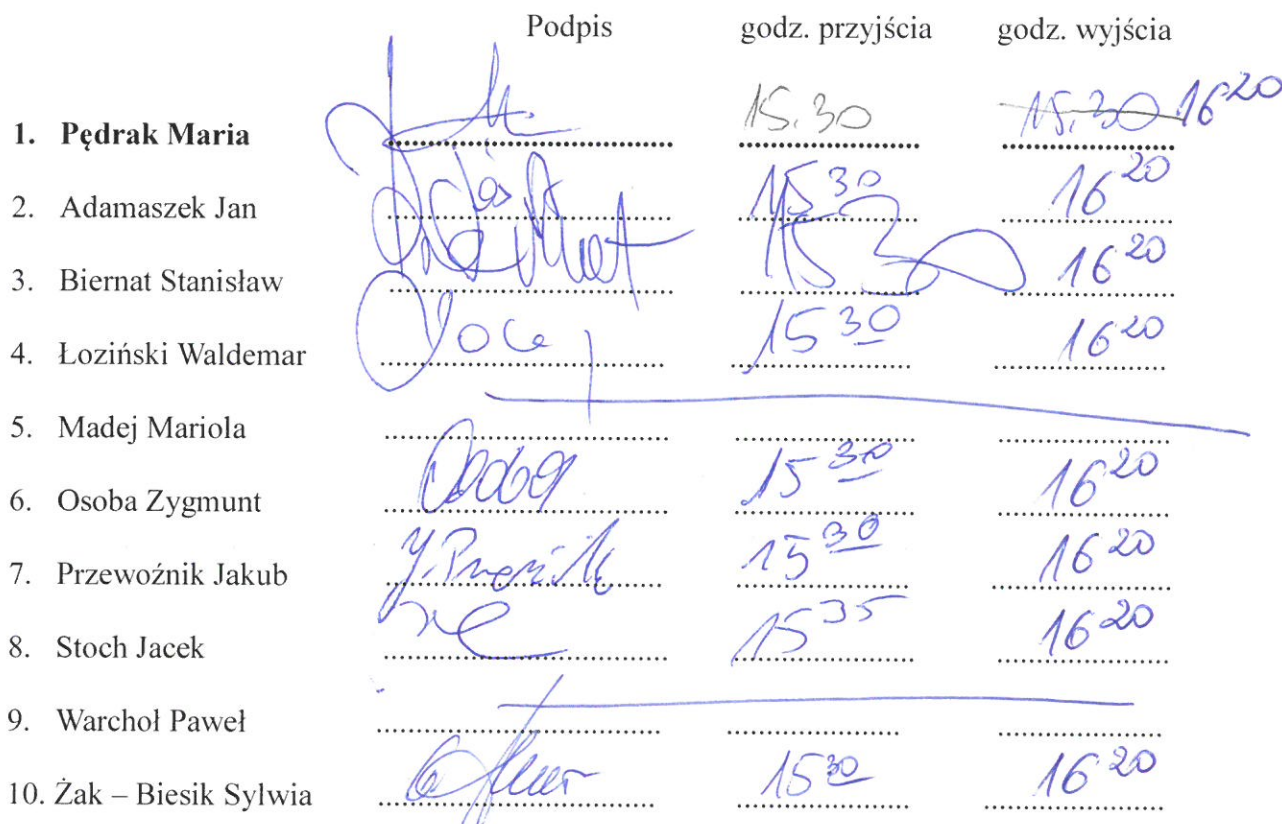 Podpis godz. przyjścia godz. wyjścia
1. Pędrak Maria 15.30 15.30 16 20
2. Adamaszek Jan 15 30 16 20
3. Biernat Stanisław 15 30 16 20
4. Łoziński Waldemar 15 30 16 20
5. Madej Mariola
6. Osoba Zygmunt 15 30 16 20
7. Przewoźnik Jakub 15 30 16 20
8. Stoch Jacek 15 35 16 20
9. Warchoł Paweł
10. Żak – Biesik Sylwia 15 30 16 20